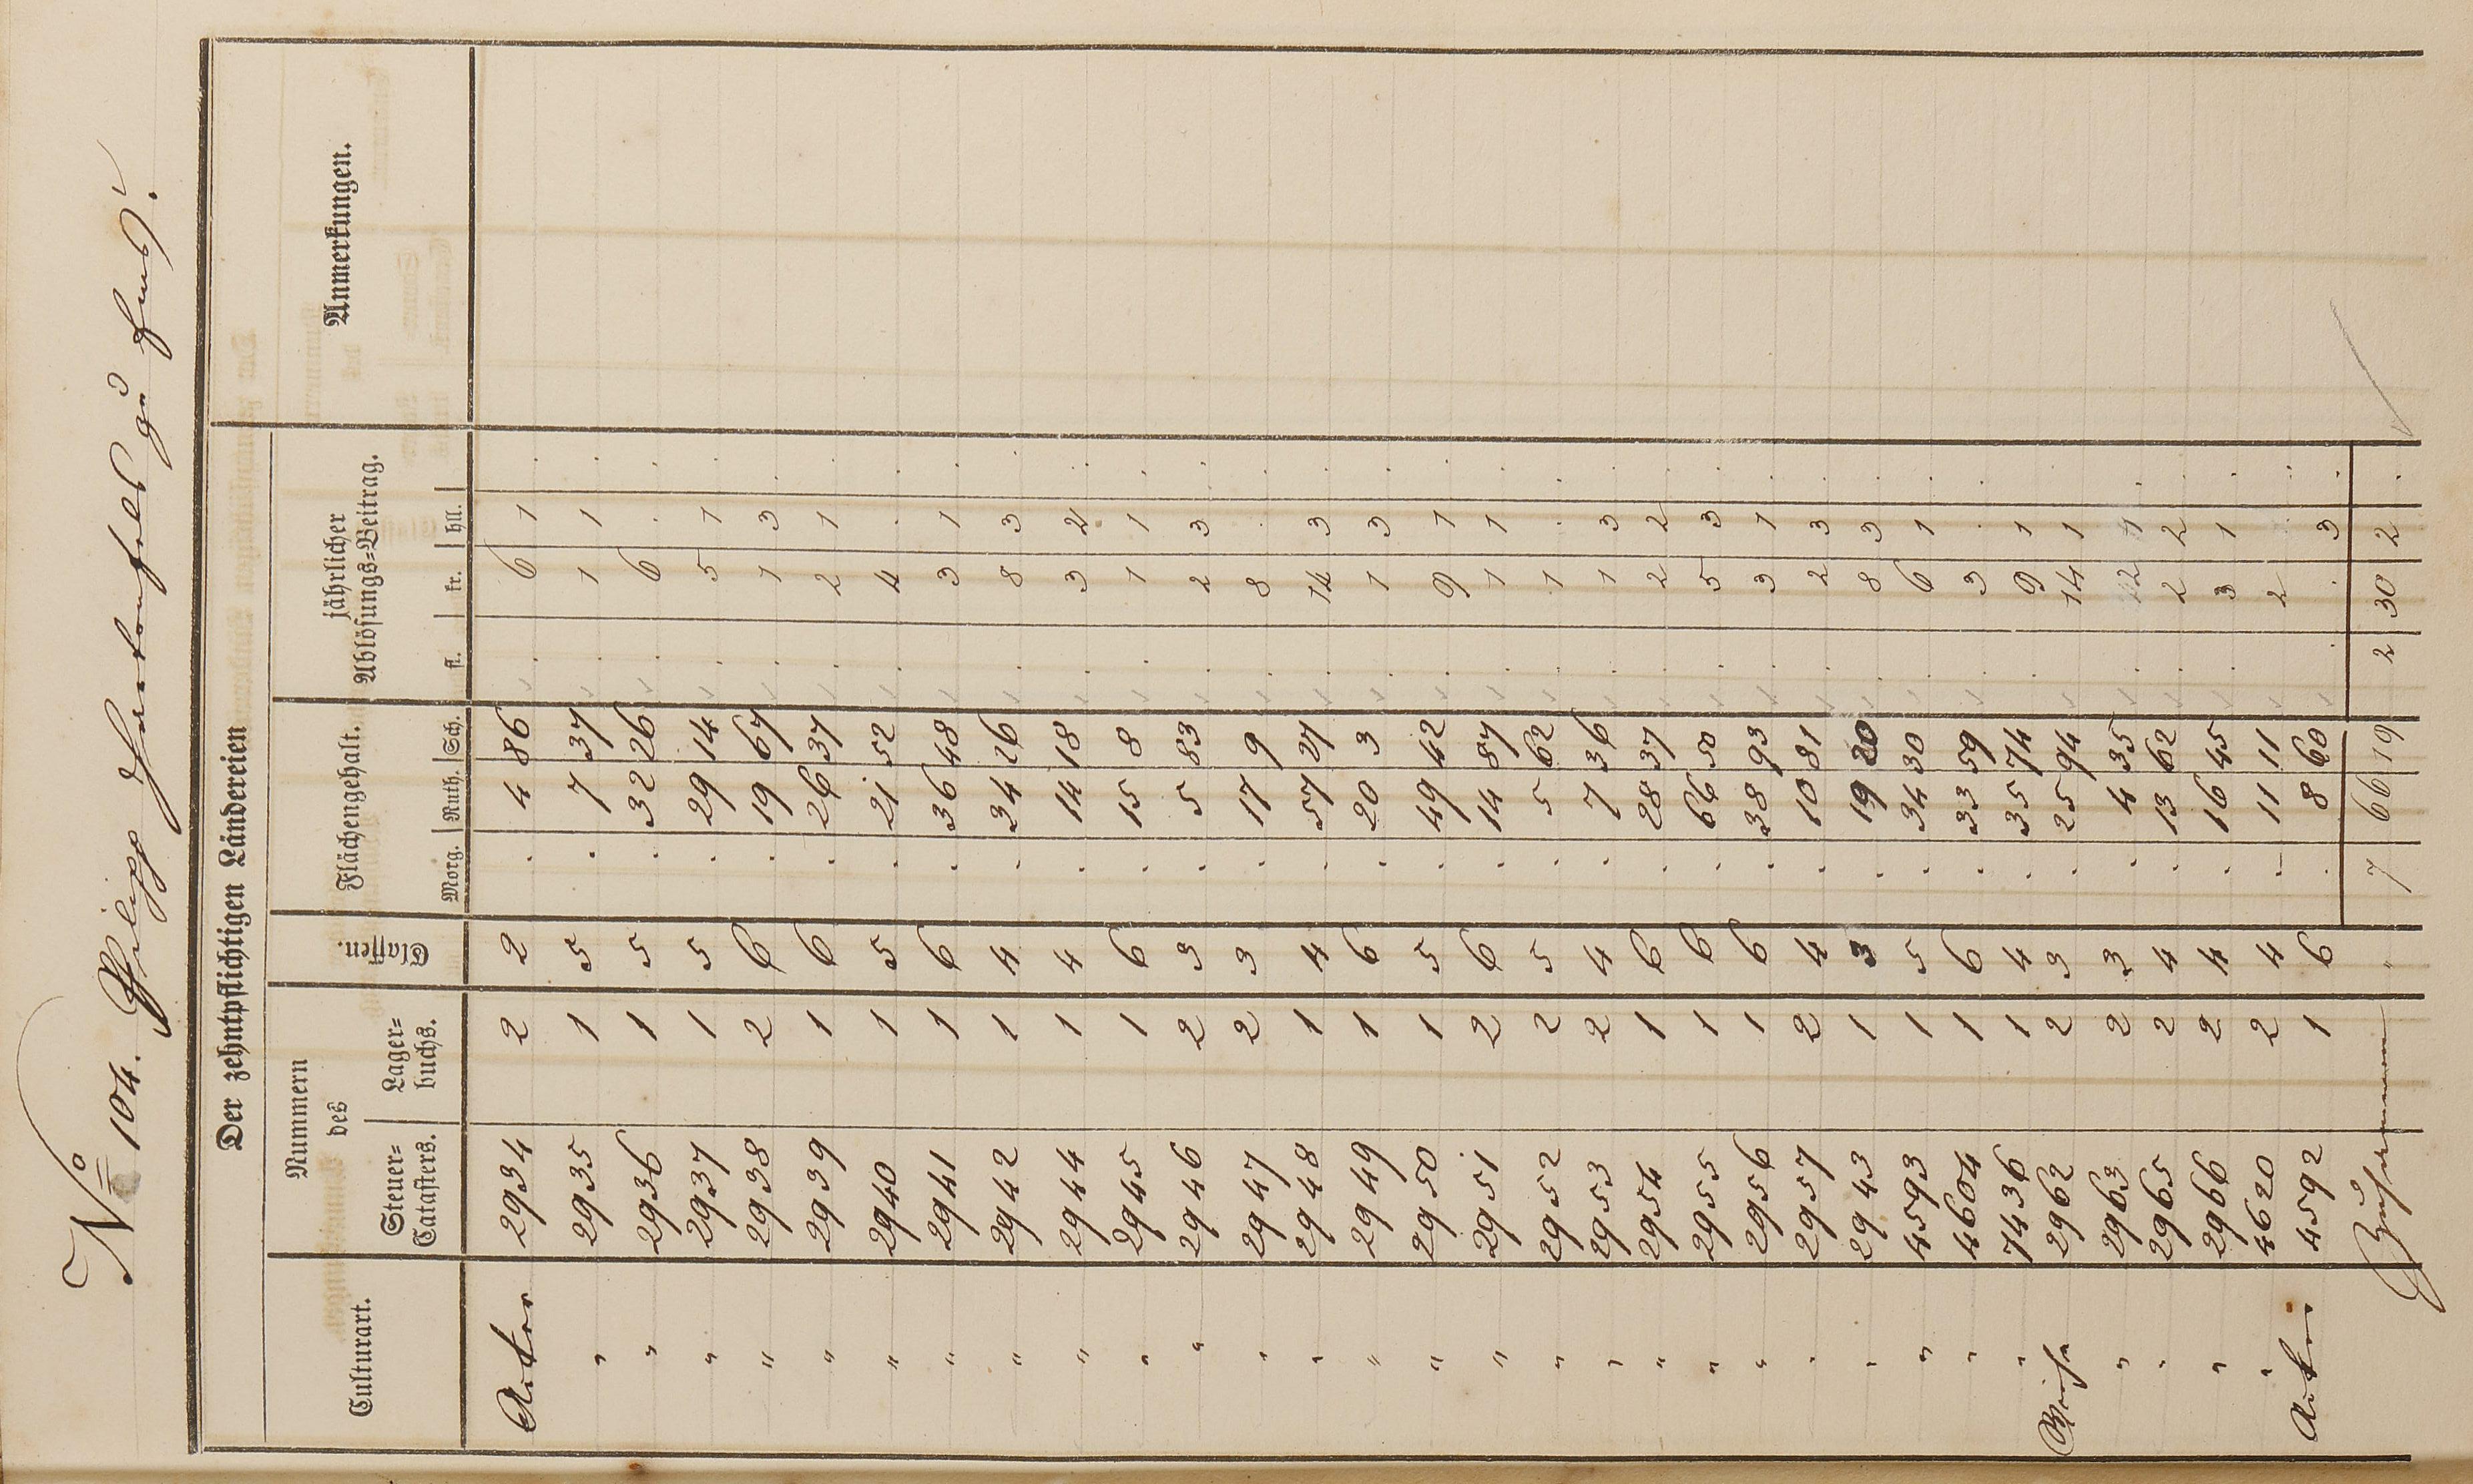 No 104. Philipp zu
Der zehntpflichtigen Ländereien
Anmerkungen.
Culturart.
Nummern des
Steuer=Catasters.
Lager=buchs.
Classen.
Flächengehalt.
Morg. Ruth. Sch.
jährlicher Ablösungs=Beitrag.
fl. kr. hll.
Acker 2934 2 2 . 4 86 . 6 1 .
" 2935 1 5 . 7 37 . 1 1 .
" 2936 1 5 . 32 26 . 6 . .
" 2937 1 5 . 29 14 . 5 1
" 2938 2 6 . 19 67 . 1 3 .
" 2939 1 6 . 26 37 . 2 1 .
" 2940 1 5 . 21 52 . 4 . .
" 2941 1 6 . 36 48 3 1 .
" 2942 1 4 . 34 26 . 8 3 .
" 2944 1 4 . 14 18 . 3 2 .
" 2945 1 6 . 15 8 . 1 1 .
" 2946 2 3 . 5 83 . 2 3 .
" 2947 2 3 . 17 9 . 8 . .
" 2948 1 4 . 57 27 . 14 3 .
" 2949 1 6 . 20 3 . 1 3 .
" 2950 1 5 . 49 42 . 9 1 .
" 2951 2 6 . 14 87 . 1 1 .
" 2952 2 5 . 5 62 . 1 . .
" 2953 2 4 . 7 36 . 1 3 .
" 2954 1 6 . 28 37 . 2 2 .
" 2955 1 6 . 66 50 . 5 3 .
" 2956 1 6 . 38 93 . 3 1 .
" 2957 2 4 . 10 81 . 2 3 .
" 2943 1 3 . 19 20 8 3 .
" 4593 1 5 . 34 30 . 6 1 .
" 4604 1 6 . 33 59 . 3 . .
" 7436 1 4 . 35 74 . 9 1
Wiese 2962 2 3 . 25 94 . 14 1 .
" 2963 2 3 . 4 35 . 12 1 .
" 2965 2 4 . 13 62 . 2 2 .
" 2966 2 4 . 16 45 . 3 1 .
" 4620 2 4 . 11 11 . 2 . .
Acker 4592 1 6 . 8 60 . . 3 .
Zusammen . 7 66 19 2 30 2 .